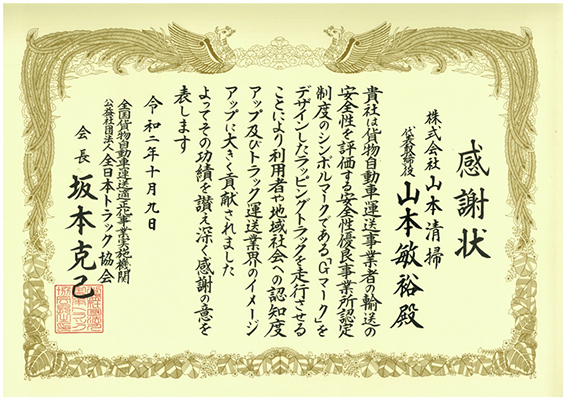 感謝状
株式会社山本清掃
代表取締役 山本敏裕殿
貴社は貨物自動車運送事業者の輸送の
安全性を評価する安全性優良事業所認定
制度のシンボルマークである「Gマーク」を
デザインしたラッピングトラックを走行させる
ことにより利用者や地域社会への認知度
アップ及びトラック運送業界のイメージ
アップに大きく貢献されました
よってその功績を讃え深く感謝の意を
表します
令和二年十月九日
全国貨物自動車運送適正化事業実施機関
公益社団法人全日本トラック協会
会長 坂本克己